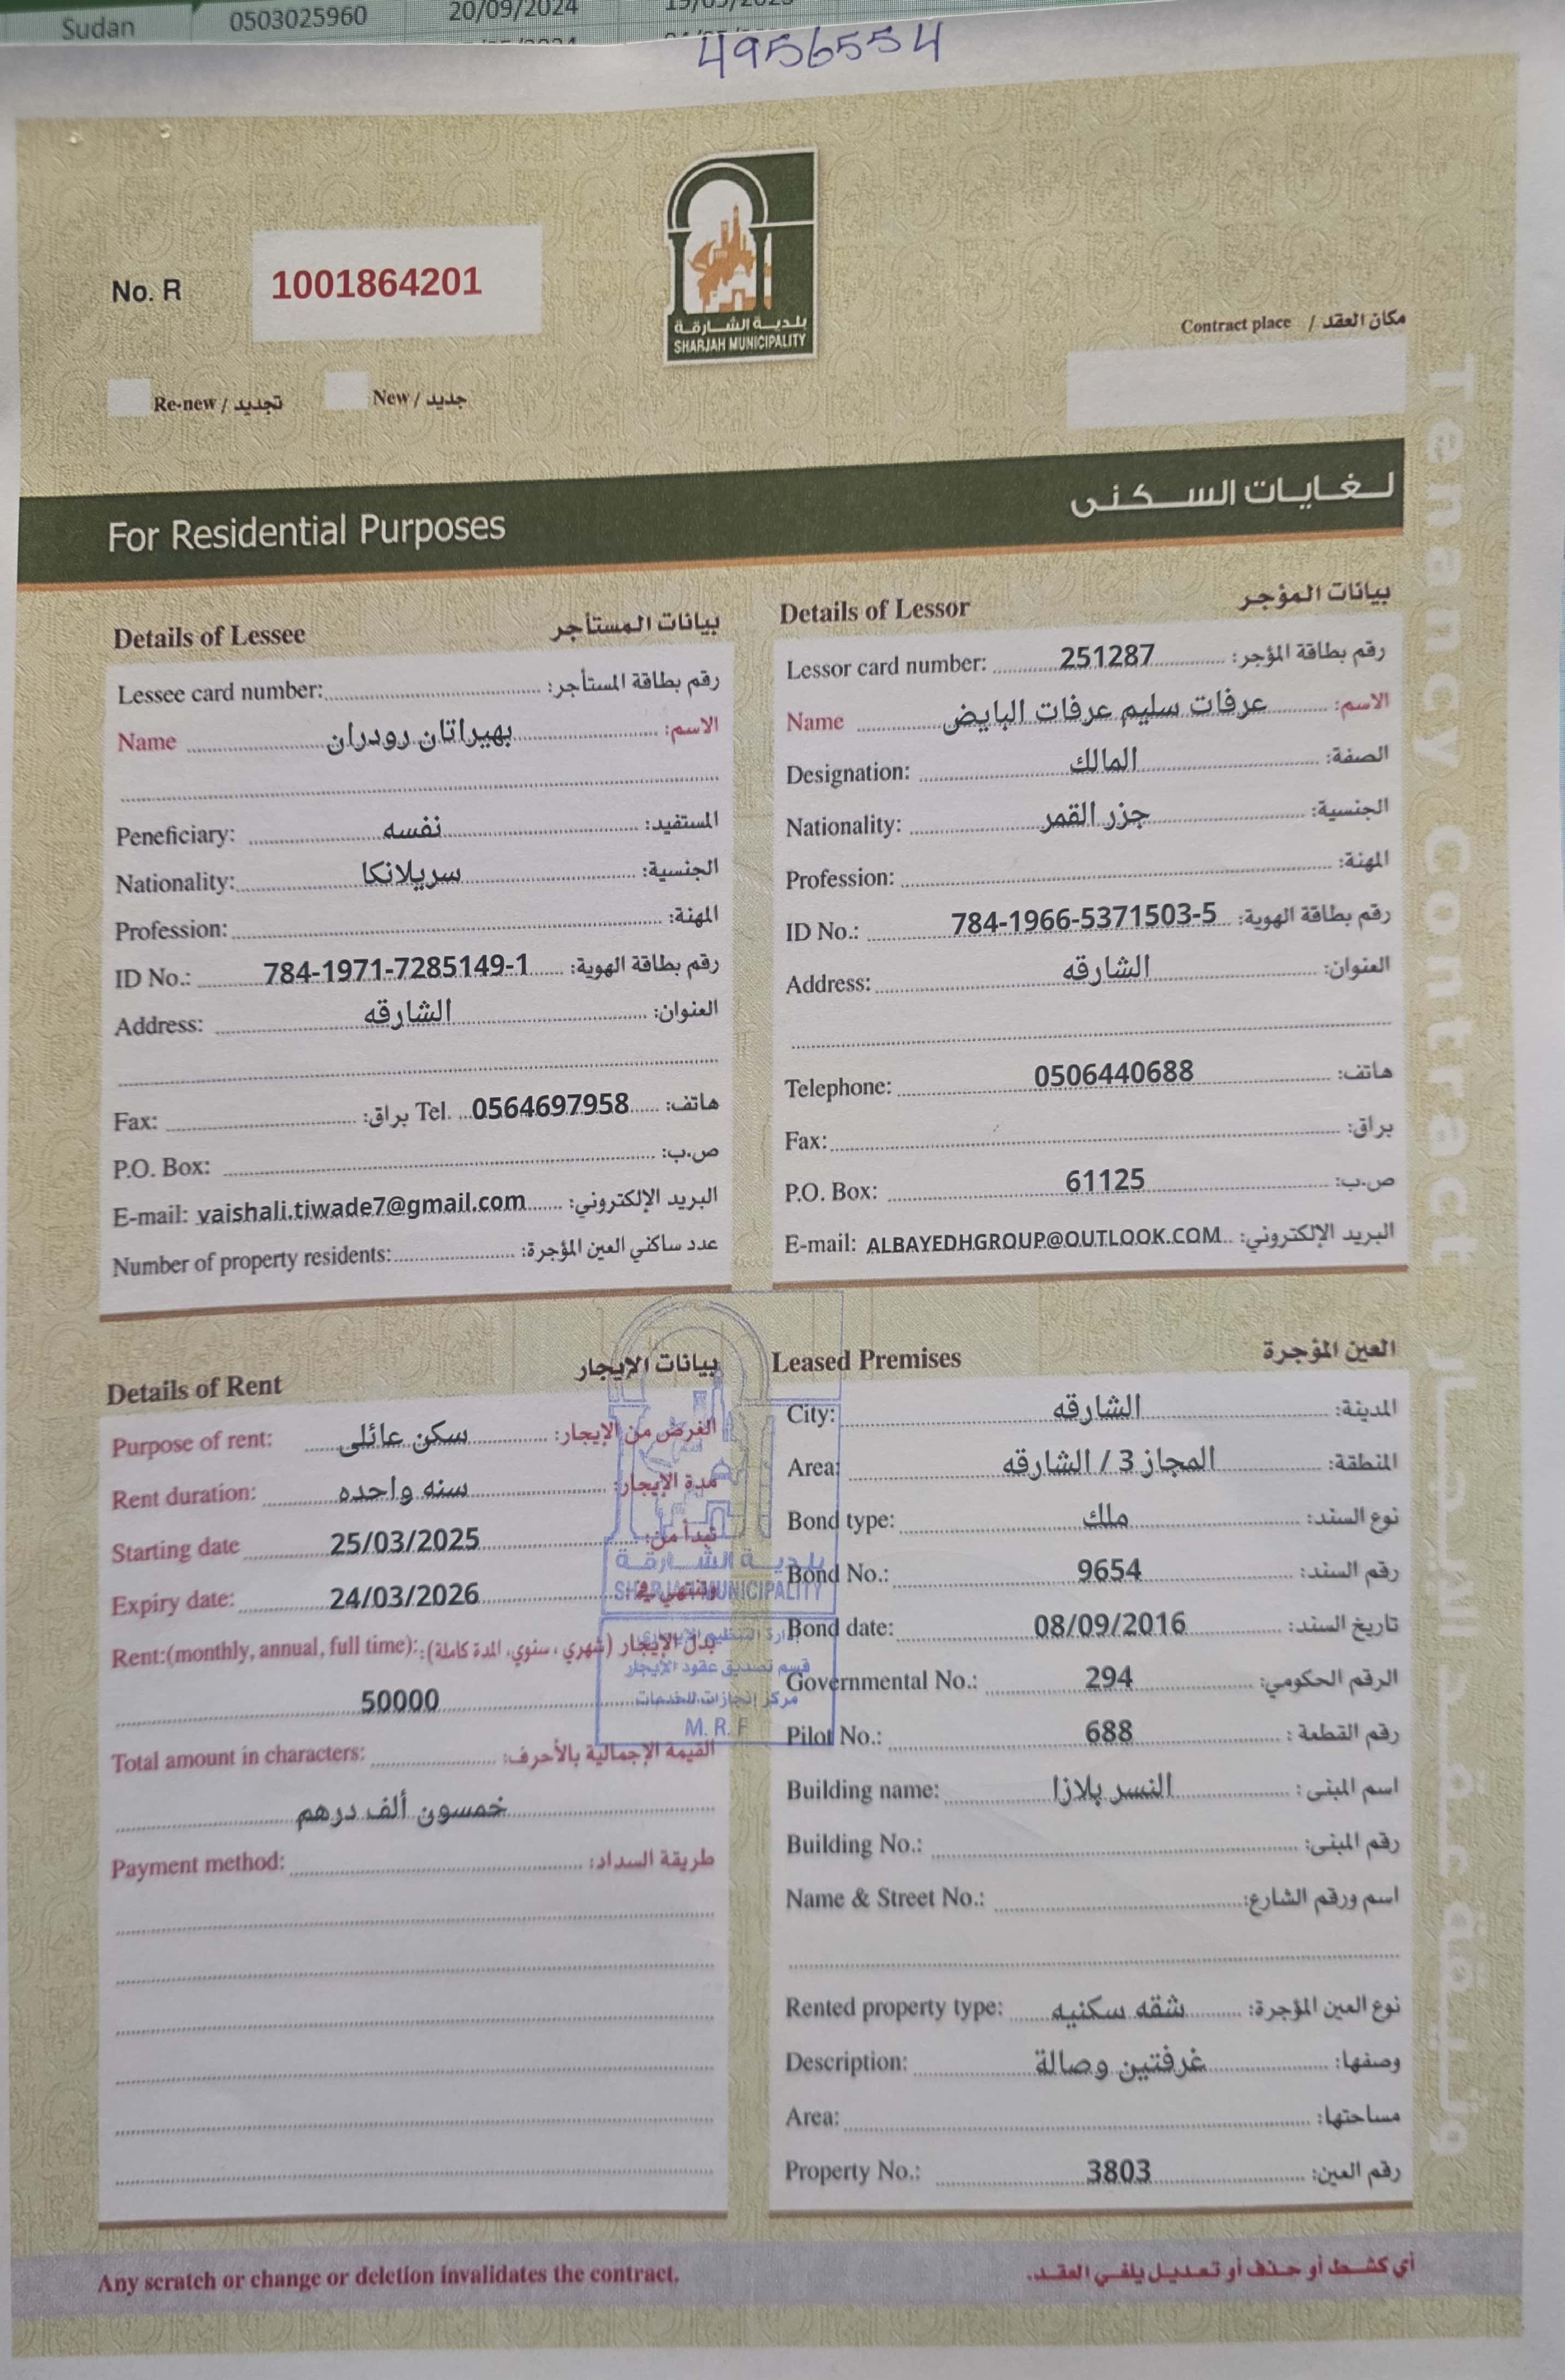 Sudan 0503025960 20/09/2024
4956554
بلدية الشارقة
SHARJAH MUNICIPALITY
No. R 1001864201
Contract place / مكان العقد
Re-new / تجديد New / جديد
For Residential Purposes لغايات السكنى
Tenancy Contract
Details of Lessee بيانات المستأجر
Lessee card number: رقم بطاقة المستأجر:
Name بهيراتان رودران الاسم:
Peneficiary: نفسه المستفيد:
Nationality: سريلانكا الجنسية:
Profession: المهنة:
ID No.: 784-1971-7285149-1 رقم بطاقة الهوية:
Address: الشارقه العنوان:
Fax: براق: Tel. 0564697958 هاتف:
P.O. Box: ص.ب:
E-mail: vaishali.tiwade7@gmail.com البريد الإلكتروني:
Number of property residents: عدد ساكني العين المؤجرة:
Details of Lessor بيانات المؤجر
Lessor card number: 251287 رقم بطاقة المؤجر:
Name عرفات سليم عرفات البايض الاسم:
Designation: المالك الصفة:
Nationality: جزر القمر الجنسية:
Profession: المهنة:
ID No.: 784-1966-5371503-5 رقم بطاقة الهوية:
Address: الشارقه العنوان:
Telephone: 0506440688 هاتف:
Fax: براق:
P.O. Box: 61125 ص.ب:
E-mail: ALBAYEDHGROUP@OUTLOOK.COM البريد الإلكتروني:
Details of Rent بيانات الإيجار
Purpose of rent: سكن عائلى الغرض من الإيجار:
Rent duration: سنه واحده مدة الإيجار:
Starting date 25/03/2025 تبدأ من:
Expiry date: 24/03/2026 وتنتهي في:
Rent:(monthly, annual, full time): بدل الإيجار (شهري، سنوي، المدة كاملة):
50000
Total amount in characters: القيمة الإجمالية بالأحرف:
خمسون ألف درهم
Payment method: طريقة السداد:
بلدية الشارقة
SHARJAH MUNICIPALITY
قسم تصديق عقود الإيجار
مركز إنجازات للخدمات
M. R. F
Leased Premises العين المؤجرة
City: الشارقه المدينة:
Area: المجاز 3 / الشارقه المنطقة:
Bond type: ملك نوع السند:
Bond No.: 9654 رقم السند:
Bond date: 08/09/2016 تاريخ السند:
Governmental No.: 294 الرقم الحكومي:
Pilot No.: 688 رقم القطعة:
Building name: النسر بلازا اسم المبنى:
Building No.: رقم المبنى:
Name & Street No.: اسم ورقم الشارع:
Rented property type: شقه سكنيه نوع العين المؤجرة:
Description: غرفتين وصالة وصفها:
Area: مساحتها:
Property No.: 3803 رقم العين:
Any scratch or change or deletion invalidates the contract. أي كشط أو حذف أو تعديل يلغي العقد.